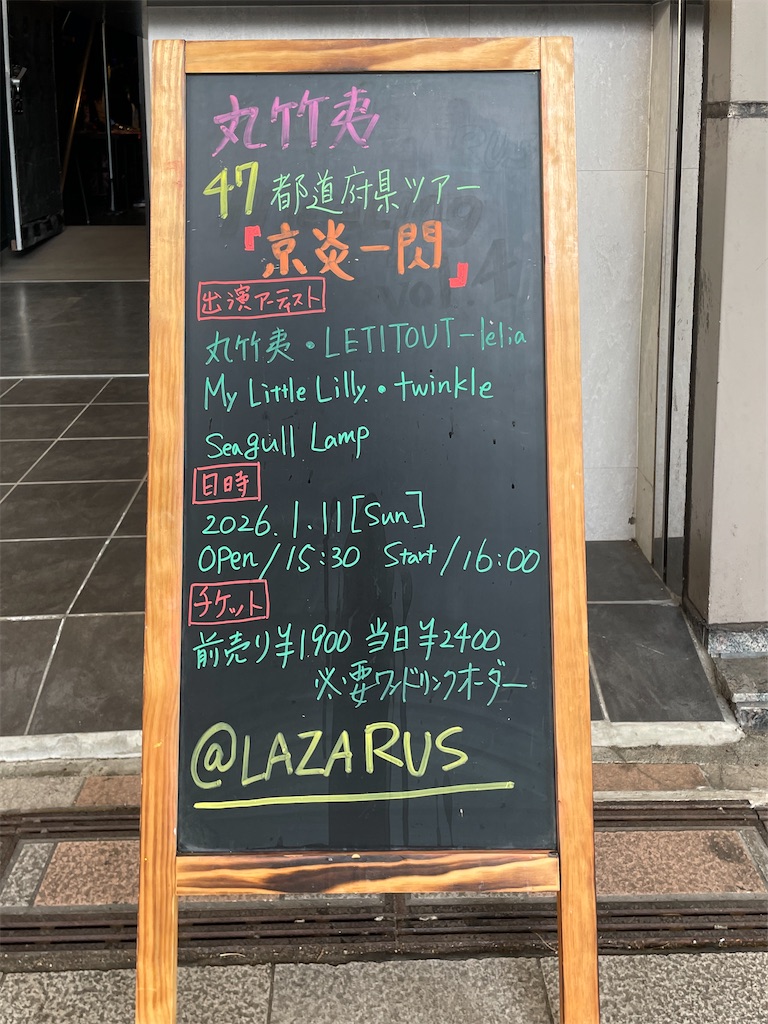 丸竹夷
47都道府県ツアー
『京炎一閃』
出演アーティスト
丸竹夷・LETITOUT-lèlia
My Little Lilly・twinkle
Seagull Lamp
日時
2026.1.11[Sun]
OPen/15:30 Start/16:00
チケット
前売り¥1.900 当日¥2400
※要ワンドリンクオーダー
@LAZARUS